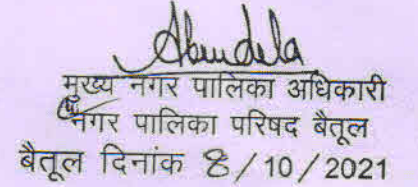 मुख्य नगर पालिका अधिकारी
नगर पालिका परिषद बैतूल
बैतूल दिनांक 8/10/2021